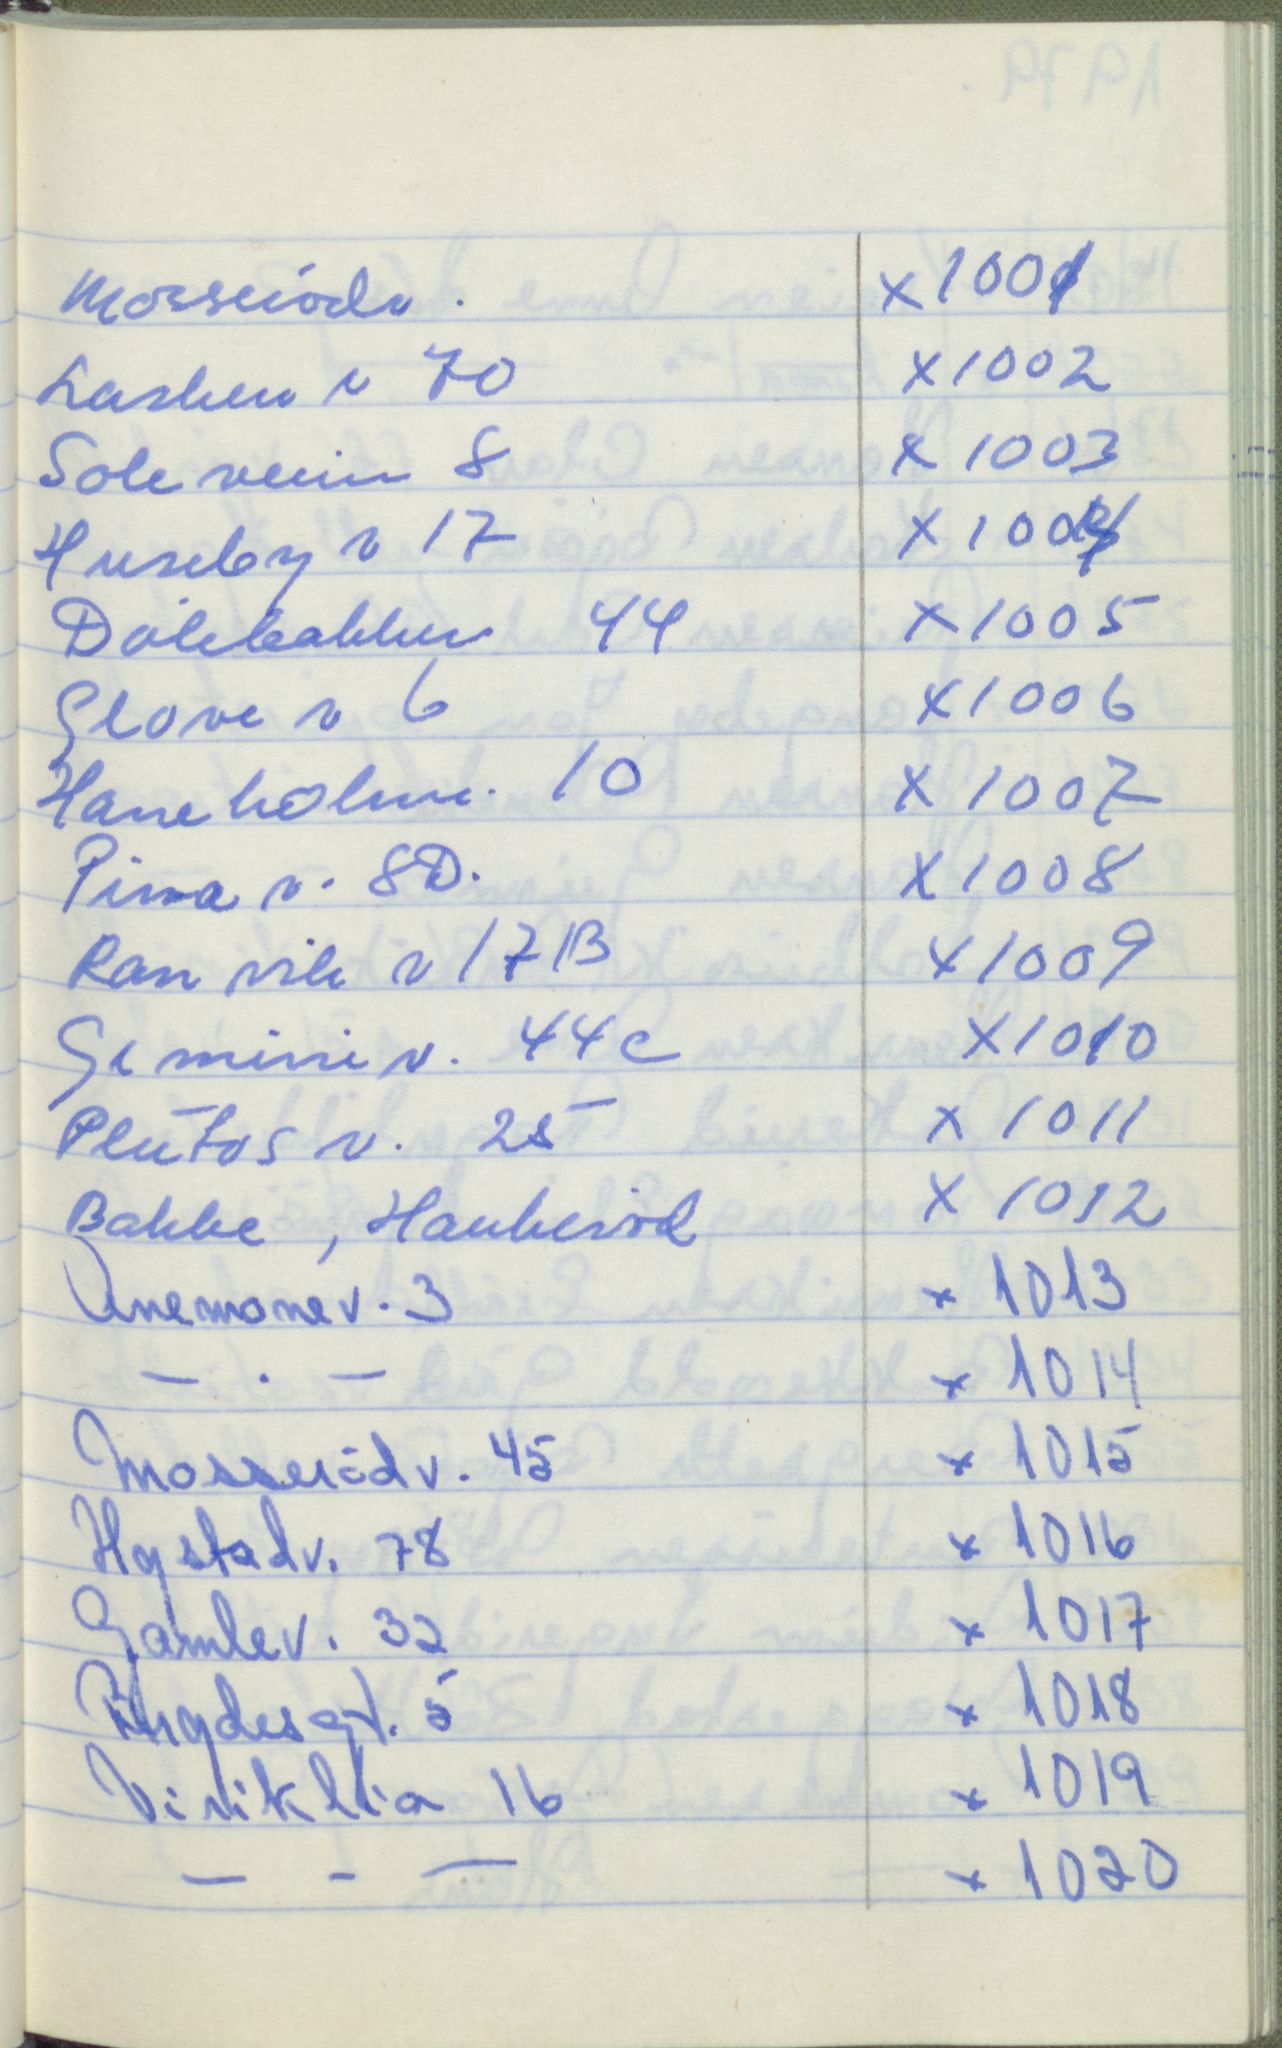 Mosserödv. x 1001
Lasken v 70 x 1002
Soleveien 8 x 1003
Huseby v 17 x 1004
Dölebakken 44 x 1005
Glove v 6 x 1006
Haneholmv. 10 x 1007
Pirra v. 8D. x 1008
Ranvik v 17B x 1009
Geminiv. 44c x 1010
Plutos v. 25 x 1011
Bakke, Haukeröd x 1012
Anemonev. 3 x 1013
— . — x 1014
Mosserödv. 45 x 1015
Hystadv. 78 x 1016
Gamlev. 32 x 1017
5 x 1018
Viriklia 16 x 1019
— - — x 1020